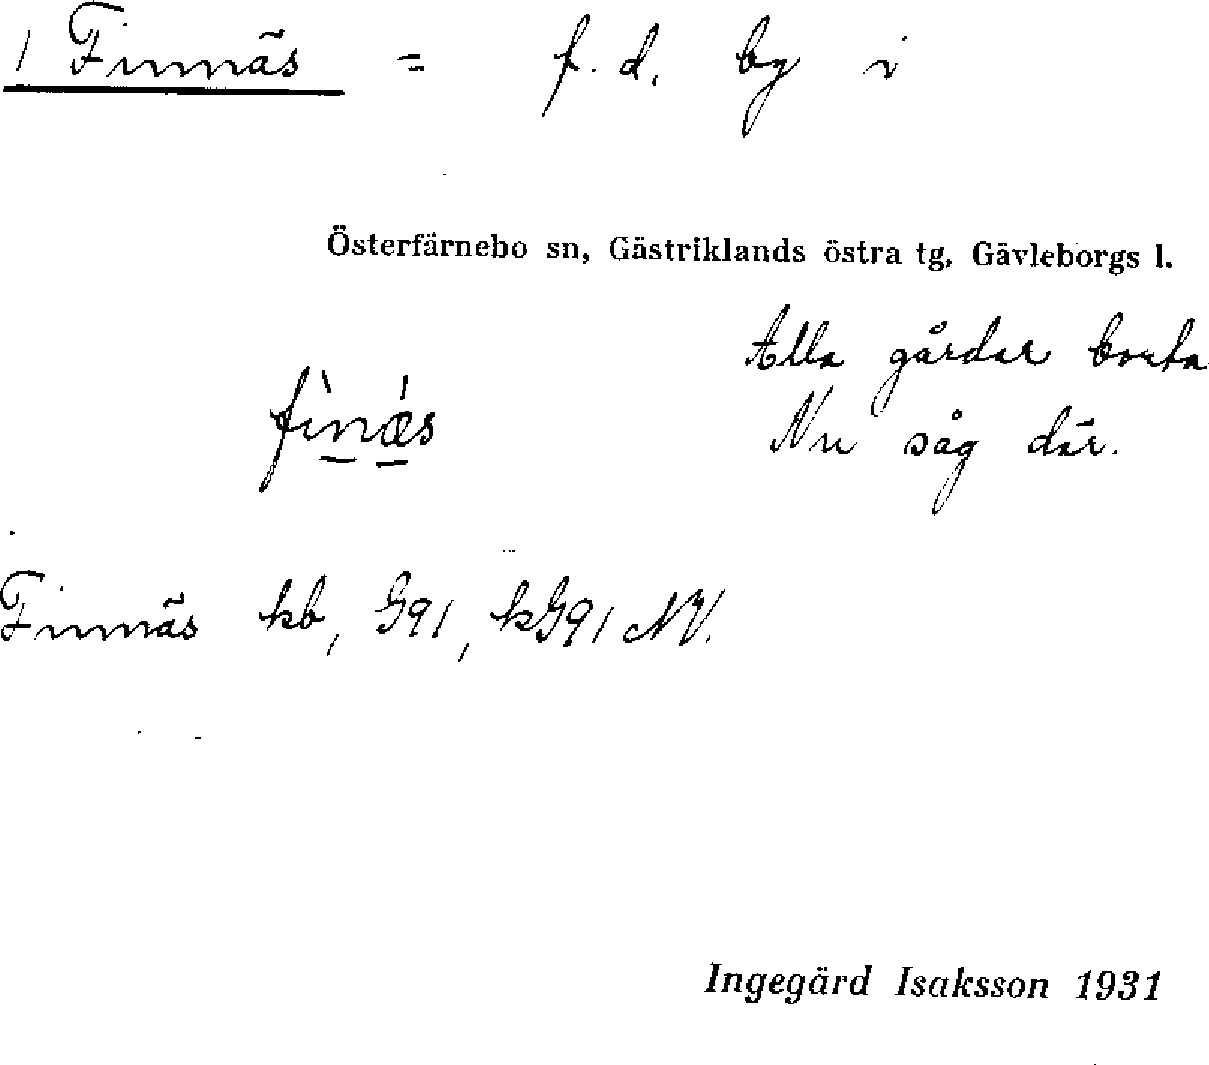 1 Finnäs = f.d. by i
Österfärnebo sn, Gästriklands östra tg, Gävleborgs l.
Alla gårdar borta
fìnǽs
Nu såg där.
Finnäs kb, G91, kG91 NV.
Ingegärd Isaksson 1931